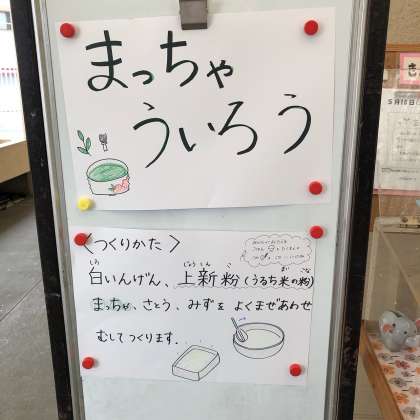 まっちゃ
ういろう
〈つくりかた〉
白いんげん、上新粉(うるち米の粉)
まっちゃ、さとう、みずをよくまぜあわせ
むしてつくります。
5月10日